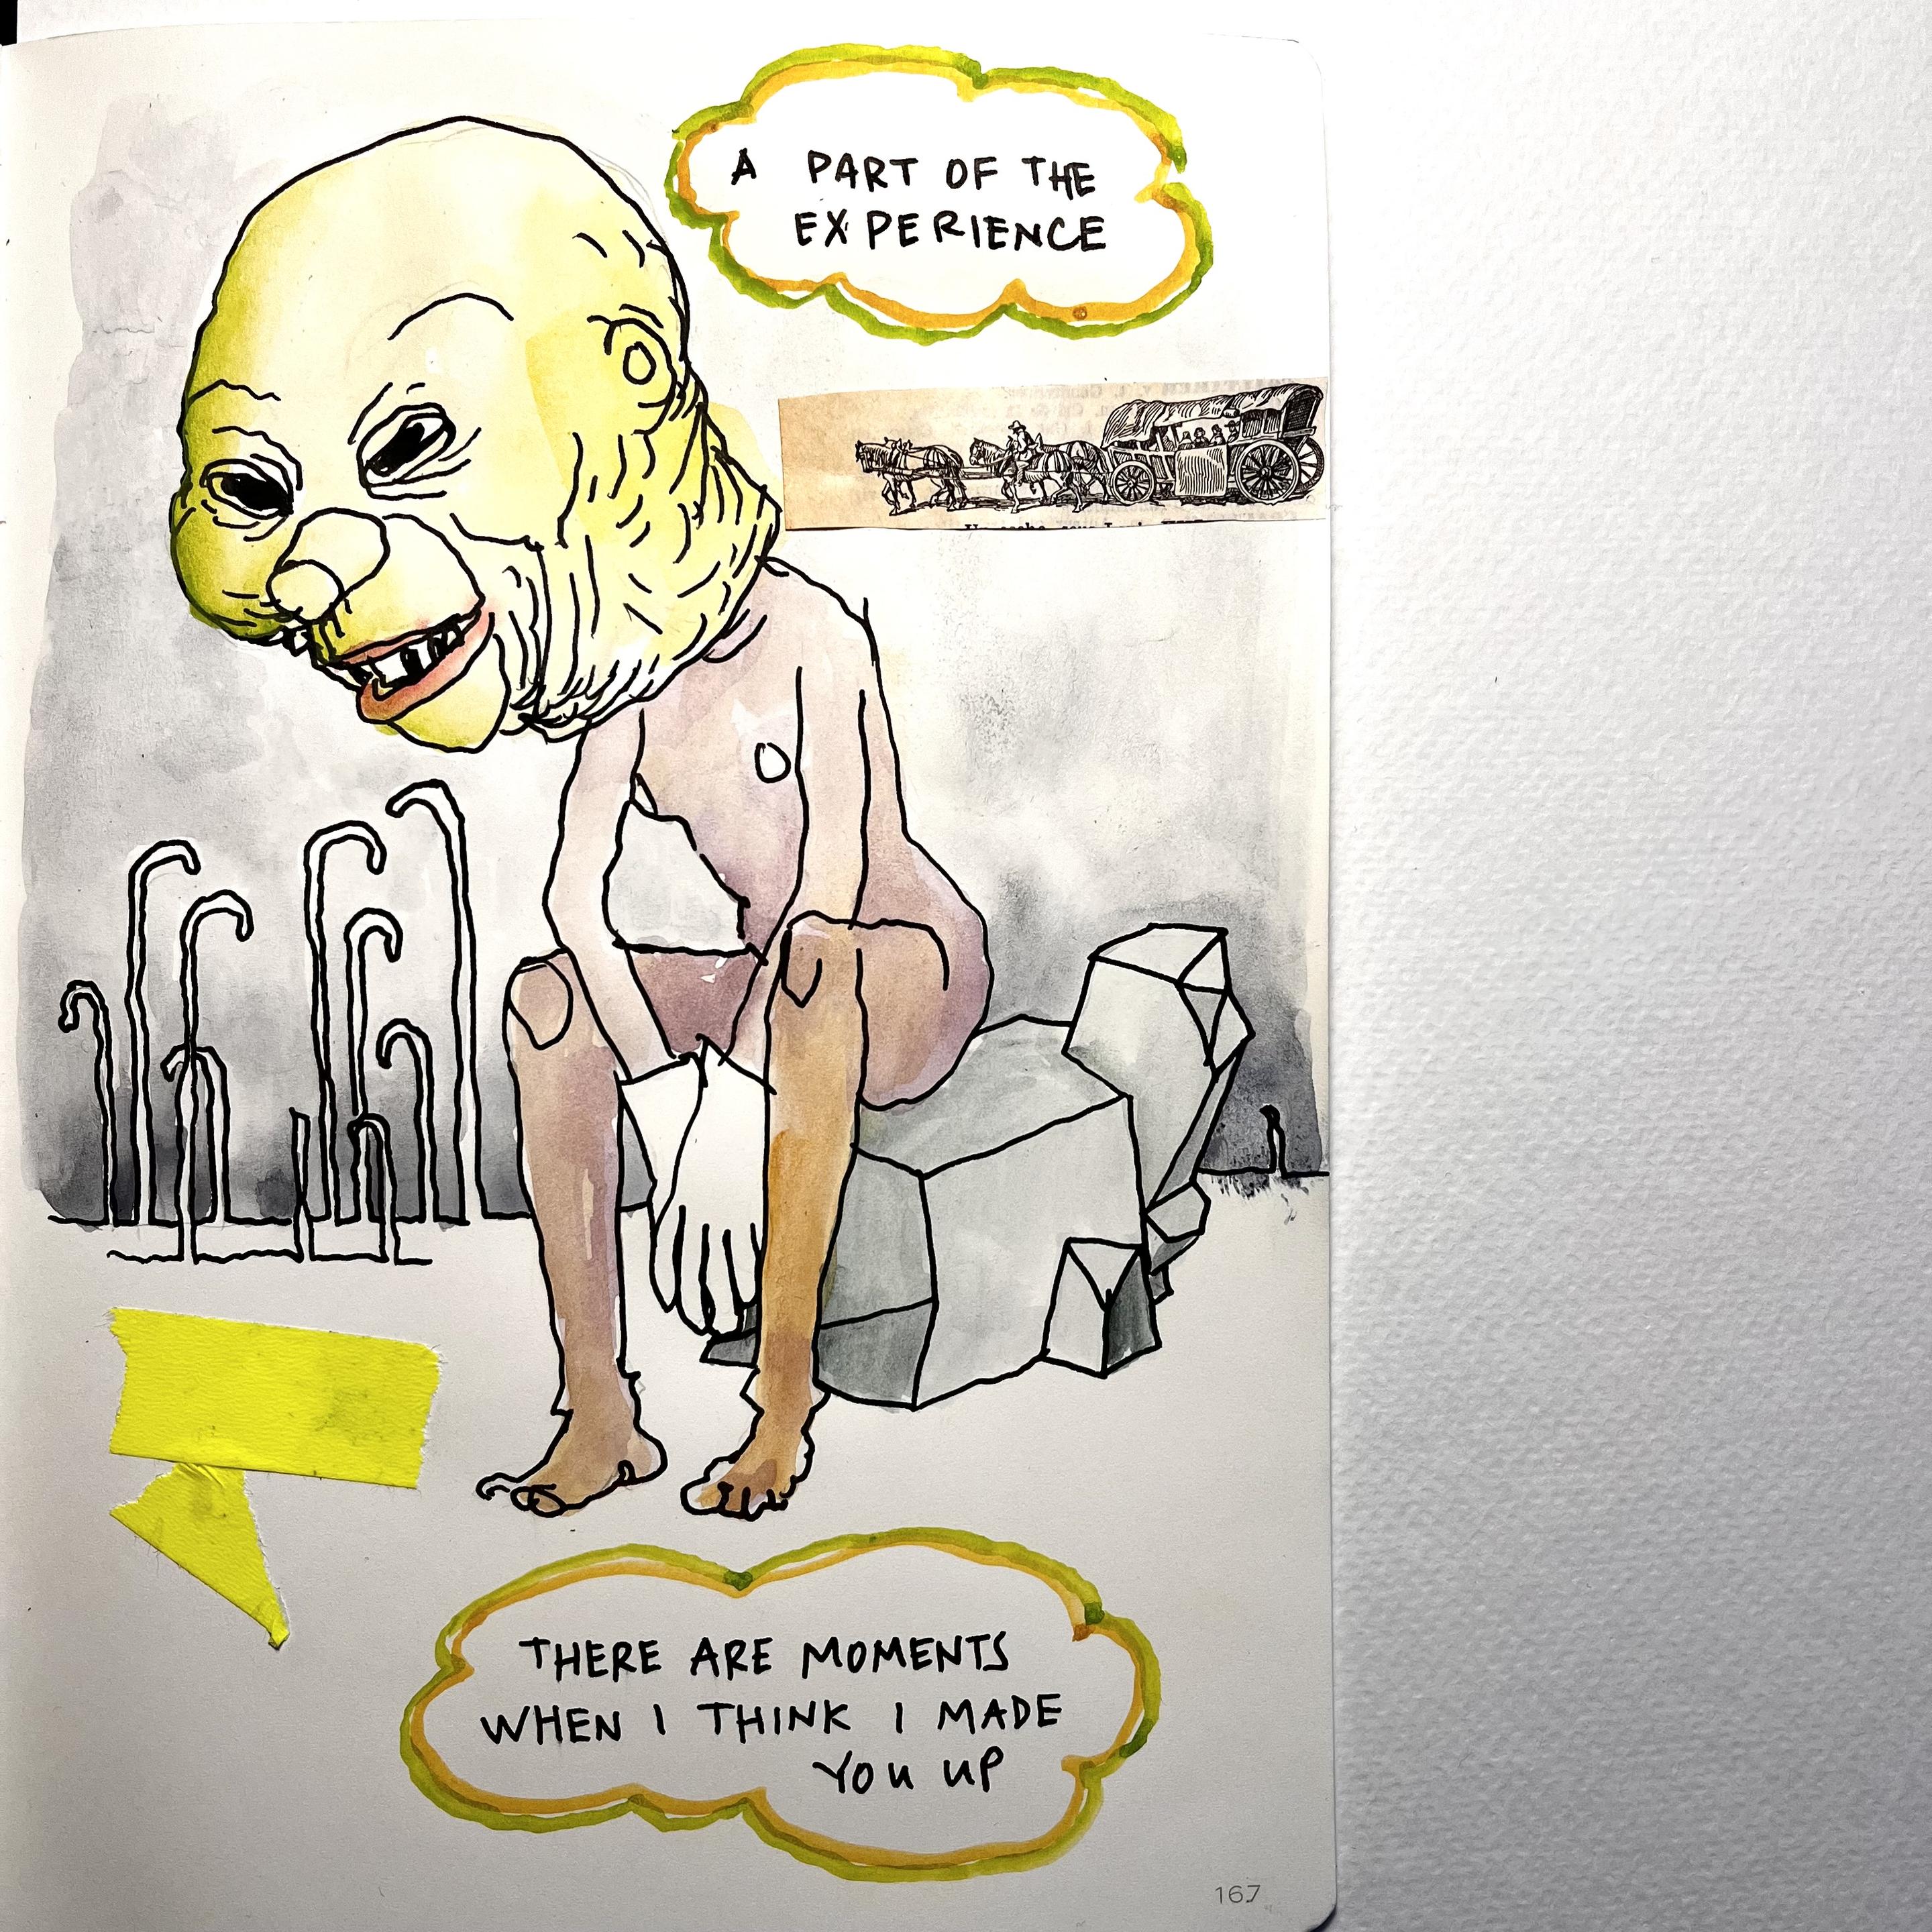 A PART OF THE
EXPERIENCE
THERE ARE MOMENTS
WHEN I THINK I MADE
YOU UP
167